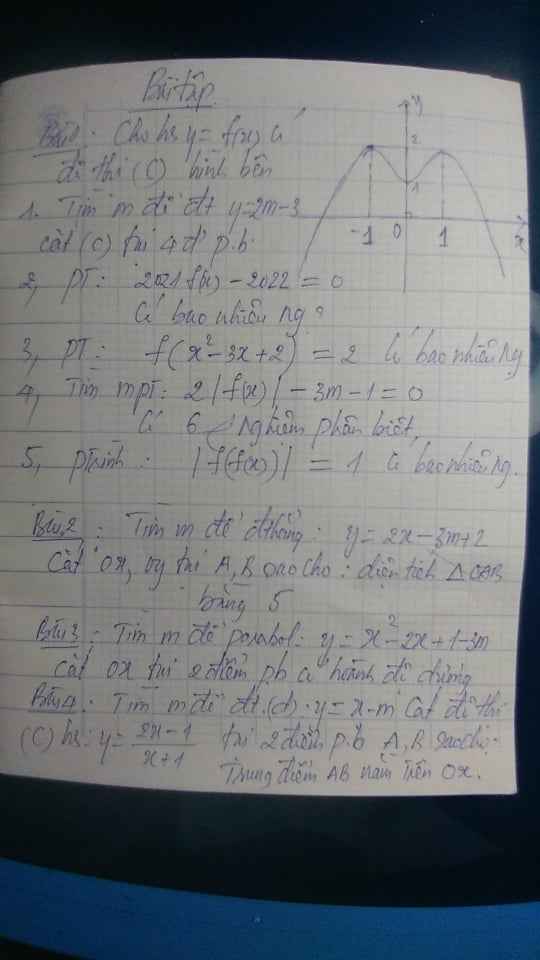 Bài tập
Bài 1: Cho hs y = f(x) có
đồ thị (C) hình bên
1. Tìm m để đt y=2m-3
cắt (C) tại 4 đ' p.b.
2, PT: 2021f(x) - 2022 = 0
Có bao nhiêu ng?
3, PT: f(x²-3x+2) = 2 Có bao nhiêu ng
4, Tìm m pt: 2|f(x)| - 3m - 1 = 0
Có 6 nghiệm phân biệt,
5, ptrình: |f(f(x))| = 1 Có bao nhiêu ng.
y
2
1
-1 0 1 x
Bài 2: Tìm m để đthẳng: y = 2x - 3m+2
Cắt Ox, oy tại A, B sao cho: diện tích Δ OAB
bằng 5
Bài 3: Tìm m để parabol: y = x²-2x+1-3m
cắt ox tại 2 điểm pb có hoành độ dương
Bài 4: Tìm m để đt.(d): y = x-m cắt đồ thị
(C) hs: y = 2x-1 / x+1 tại 2 điểm p.b A, B sao cho:
Trung điểm AB nằm trên Ox.